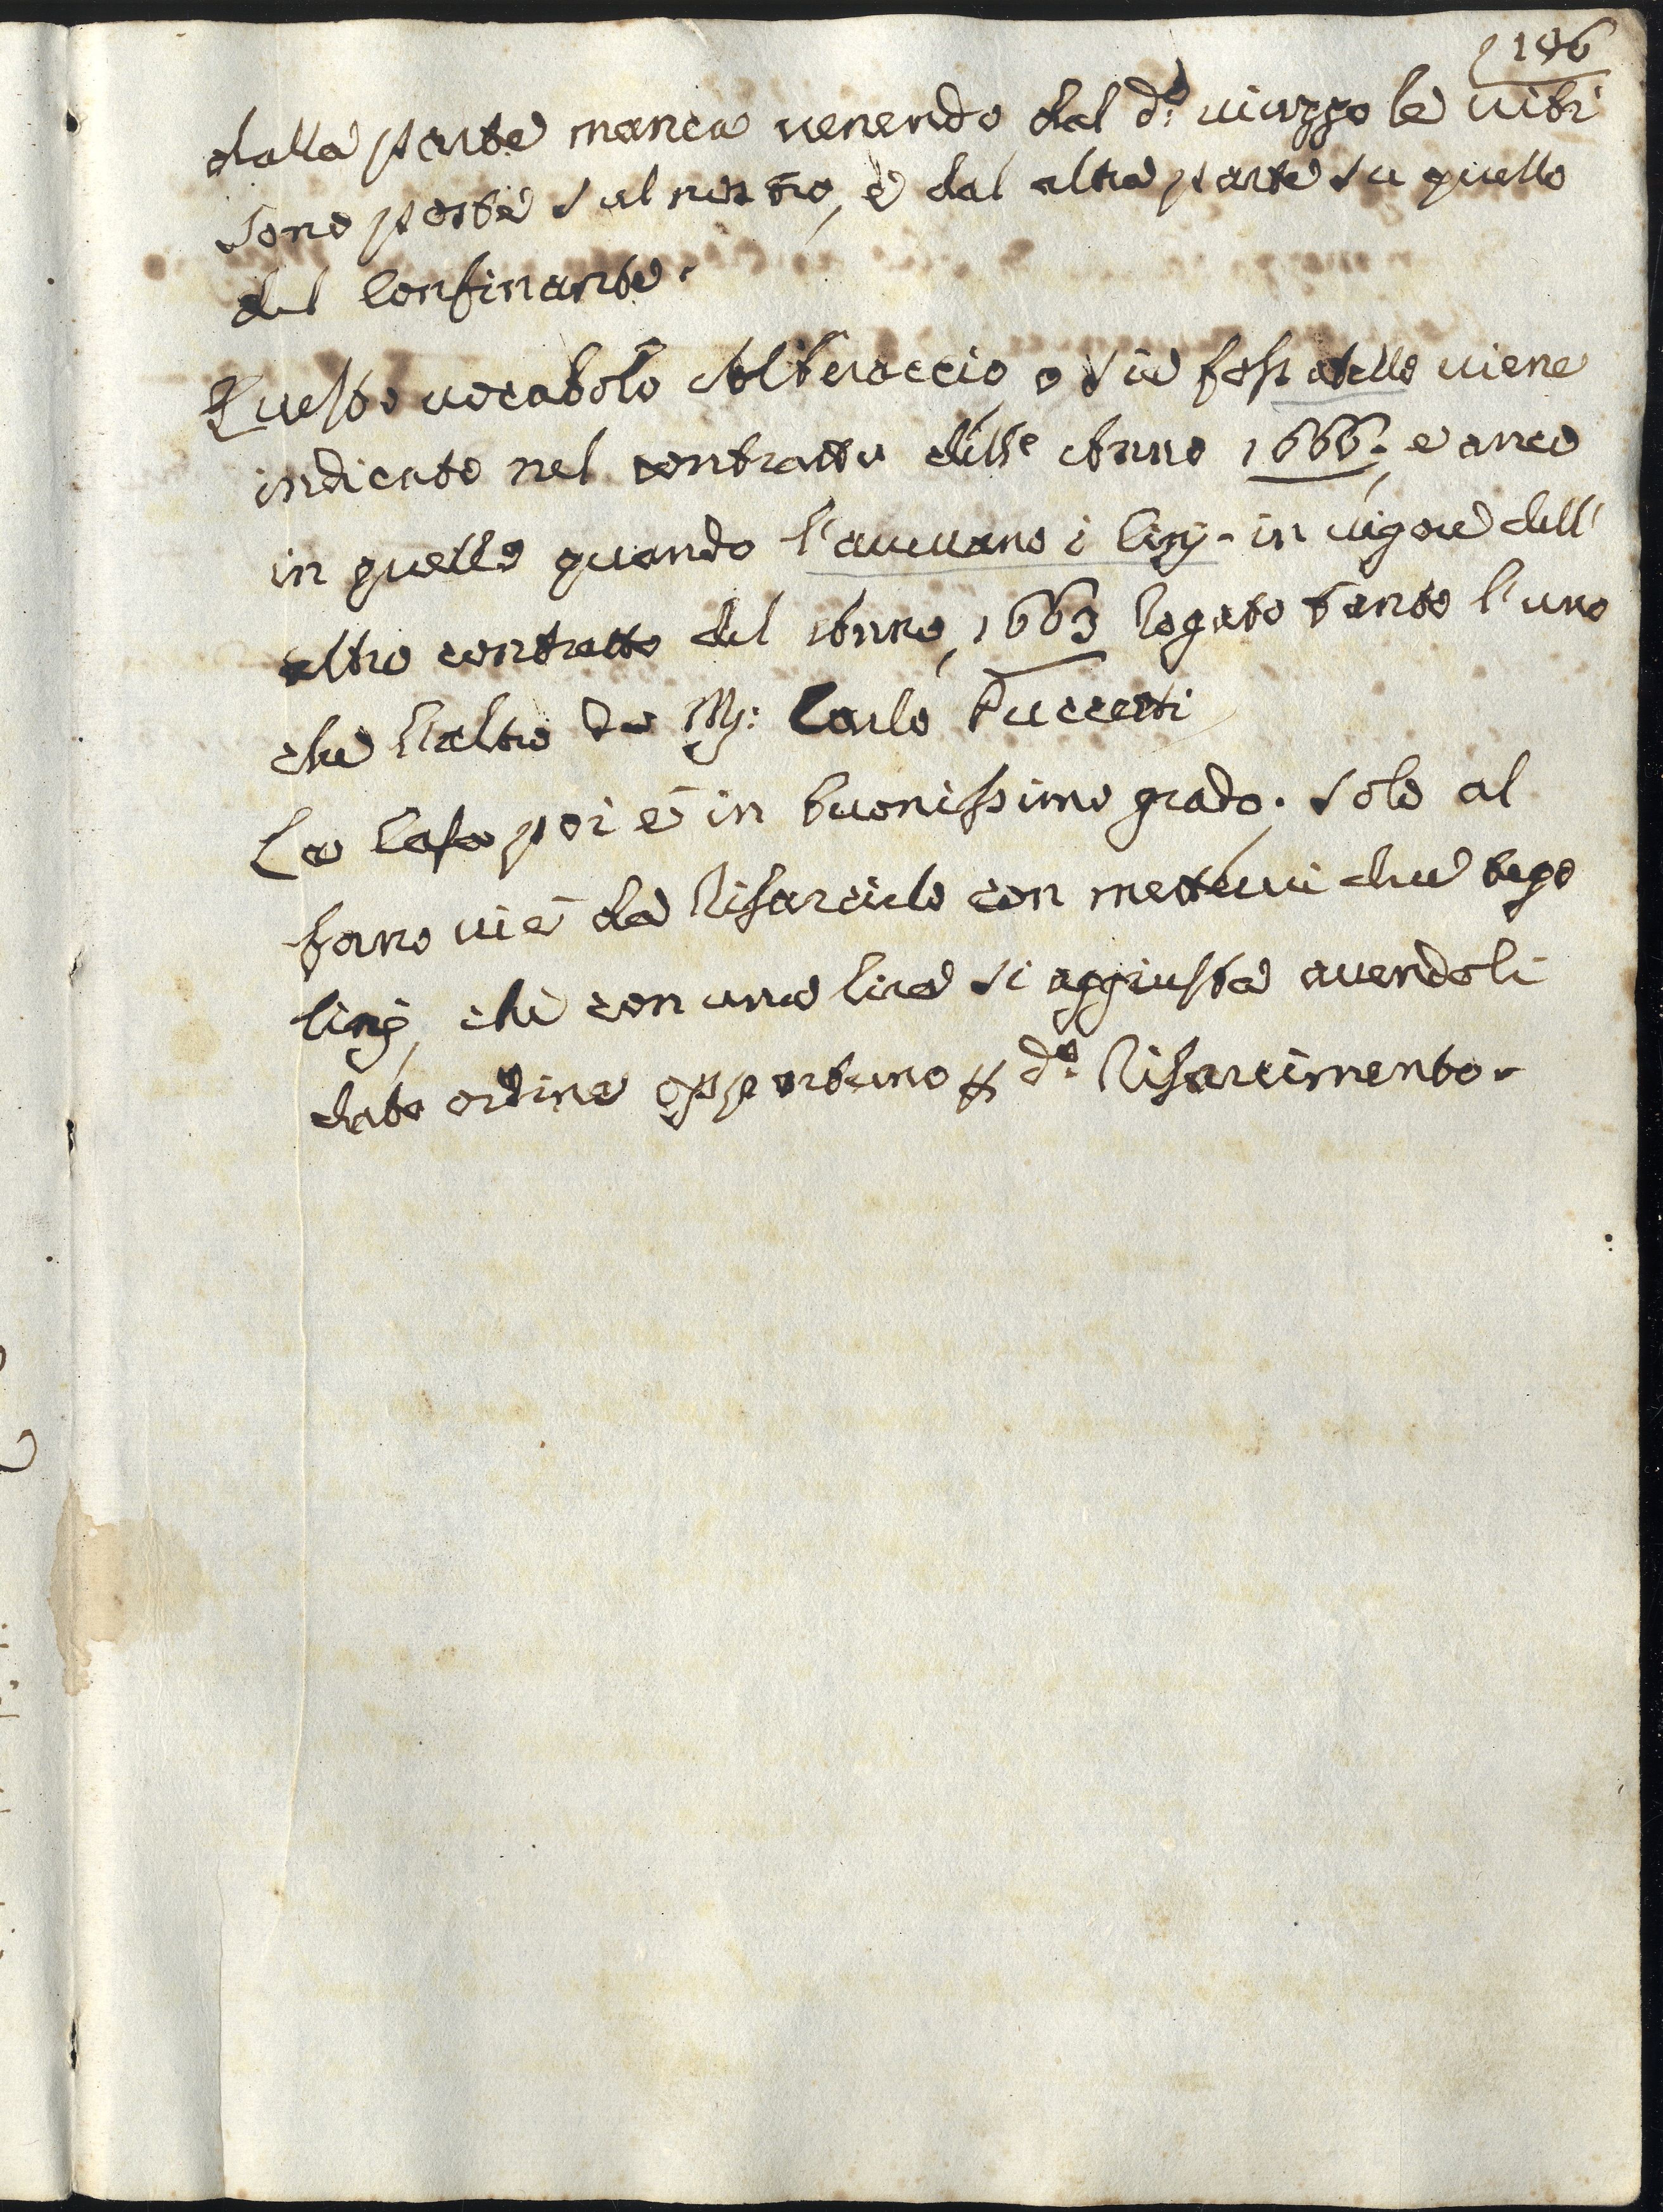 106
dalla parte manca venendo dal d.o viuzzo le viti
sono poste sul nostro, e dal altra parte su quello
del Confinante.
Questo vocabolo Alberaccio, o sia fossatello viene
indicato nel contratto dell' Anno 1666. e anco
in quello quando l'avevano i Cinj. in vigore dell'
altro contratto del Anno, 1663 rogato tanto l'uno
che l'altro da M.r Carlo Puccetti
La Casa poi è in buonissimo grado. solo al
forno vi è da risarcirlo con mettervi due tego
linj, che con una lira si aggiusta avendoli
dato ordine opportuno p d.o risarcimento.